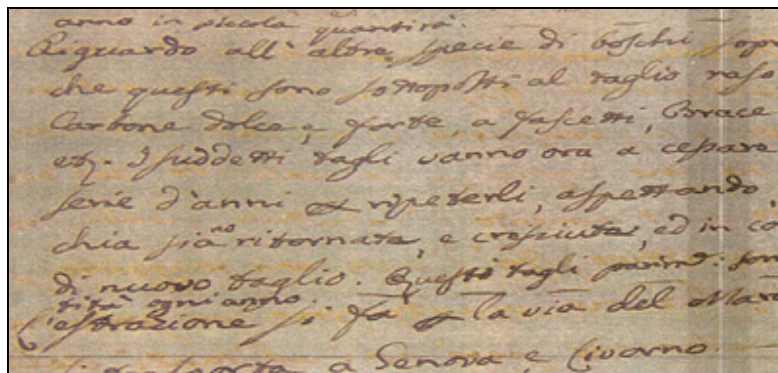 anno in piccola quantità.
Riguardo all'altre specie di boschi sopr
che questi sono sottoposti al taglio raso
Carbone dolce, e forte, a fascetti, Brace
etz. I suddetti tagli vanno ora a cessare
serie d'anni ripeterli, aspettando,
chia sia^no ritornata, e cresciuta, ed in co
di nuovo taglio. Questi tagli parim: son
tità ogni anno.
L'estrazione si fa la via del Mar
a Genova e Livorno.